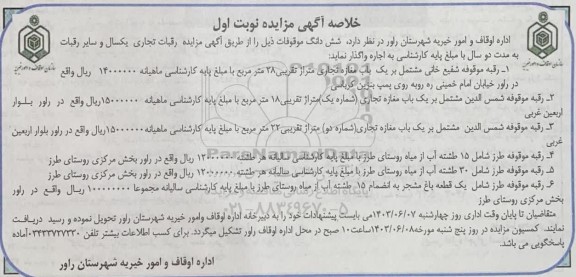 خلاصه آگهی مزایده نوبت اول
اداره اوقاف و امور خیریه شهرستان راور در نظر دارد، شش دانگ موقوفات ذیل را از طریق آگهی مزایده رقبات تجاری یکسال و سایر رقبات
به مدت دو سال با مبلغ پایه کارشناسی به اجاره واگذار نماید:
۱_ رقبه موقوفه شفیع خانی مشتمل بر یک باب مغازه تجاری متراژ تقریبی۲۸ متر مربع با مبلغ پایه کارشناسی ماهیانه ۱۴۰۰۰۰۰۰ ریال واقع
در راور خیابان امام خمینی ره روبه روی پمپ بنزین کرباسی
۲_ رقبه موقوفه شمس الدین مشتمل بر یک باب مغازه تجاری (شماره یک)متراژ تقریبی۱۸ متر مربع با مبلغ پایه کارشناسی ماهیانه ۱۵۰۰۰۰۰۰ریال واقع در راور بلوار
اربعین غربی
۳_ رقبه موقوفه شمس الدین مشتمل بر یک باب مغازه تجاری(شماره دو) متراژ تقریبی۲۲ متر مربع با مبلغ پایه کارشناسی ماهیانه ۱۵۰۰۰۰۰۰ریال واقع در راور بلوار اربعین
غربی
۴_ رقبه موقوفه طرز شامل ۱۵ طشته آب از میاه روستای طرز با مبلغ پایه کارشناسی سالیانه هر طشته ۱۲۰۰۰۰۰ ریال واقع در راور بخش مرکزی روستای طرز
۵_ رقبه موقوفه طرز شامل ۳۰ طشته آب از میاه روستای طرز با مبلغ پایه کارشناسی سالیانه هر طشته ۱۲۰۰۰۰۰ ریال واقع در راور بخش مرکزی روستای طرز
۶_ رقبه موقوفه طرز شامل یک قطعه باغ مشجر به انضمام ۱۵ طشته آب از میاه روستای طرز با مبلغ پایه کارشناسی سالیانه مجموعا ۱۰۰۰۰۰۰۰۰ ریال واقع در راور
بخش مرکزی روستای طرز
متقاضیان تا پایان وقت اداری روز چهارشنبه ۱۴۰۳/۰۶/۰۷می بایست پیشنهادات خود را به دبیرخانه اداره اوقاف وامور خیریه شهرستان راور تحویل نموده و رسید دریافت
نمایند. کمسیون مزایده در روز پنج شنبه مورخه۱۴۰۳/۰۶/۰۸ساعت۱۰ صبح در محل اداره اوقاف راور تشکیل میگردد. برای کسب اطلاعات بیشتر تلفن ۰۳۴۳۳۷۲۷۳۳۰آماده
پاسخگویی می باشد.
اداره اوقاف و امور خیریه شهرستان راور